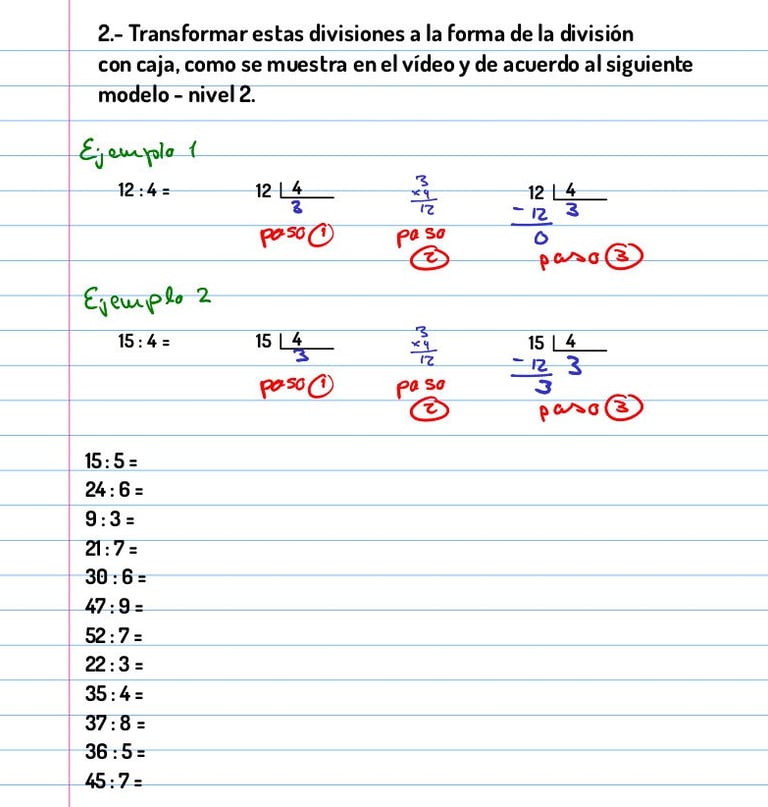 2.- Transformar estas divisiones a la forma de la división
con caja, como se muestra en el vídeo y de acuerdo al siguiente
modelo - nivel 2.
Ejemplo 1
12 : 4 =
12 4
3
paso 1
3
x4
12
paso
2
12 4
- 12 3
0
paso 3
Ejemplo 2
15 : 4 =
15 4
3
paso 1
3
x4
12
paso
2
15 4
- 12 3
3
paso 3
15 : 5 =
24 : 6 =
9 : 3 =
21 : 7 =
30 : 6 =
47 : 9 =
52 : 7 =
22 : 3 =
35 : 4 =
37 : 8 =
36 : 5 =
45 : 7 =